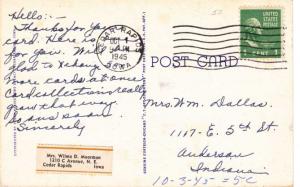 Hello:-
Thanks for your
card. Here is one
for you. Will be
glad to exchange
more cards at once
card collection really
grow that way.
Sincerely
Mrs. Wilma D. Moorman
1210 C Avenue, N. E.
Cedar Rapids Iowa
CEDAR RAPIDS
1945
IOWA
UNITED STATES
POSTAGE
1
POST CARD
Mrs. Wm. Dallas
1107-E. 5th St.
Anderson
Indiana
10-3-45-5c